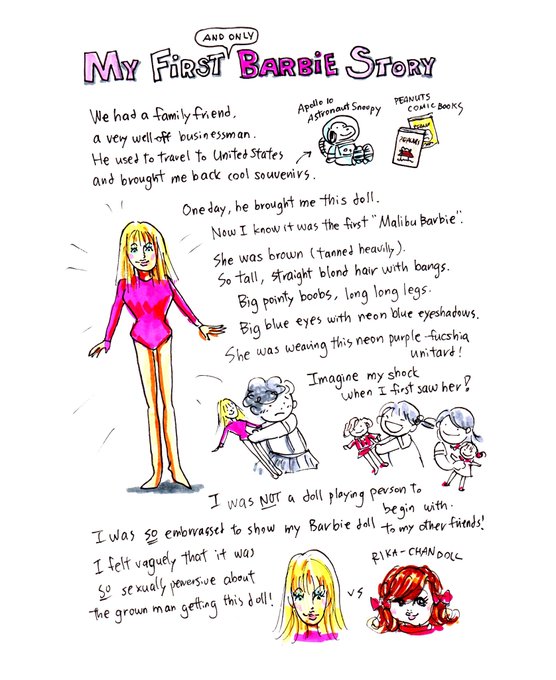 AND ONLY
MY FIRST BARBIE STORY
We had a family friend,
a very well-off businessman.
He used to travel to United States
and brought me back cool souvenirs.
Apollo 10
Astronaut Snoopy
PEANUTS
COMIC BOOKS
One day, he brought me this doll.
Now I know it was the first "Malibu Barbie".
She was brown (tanned heavilly).
So tall, straight blond hair with bangs.
Big pointy boobs, long long legs.
Big blue eyes with neon blue eyeshadows.
She was wearing this neon purple-fucshia
unitard!
Imagine my shock
when I first saw her!
I was NOT a doll playing person to
begin with.
I was so embrrassed to show my Barbie doll to my other friends!
I felt vaguely that it was
so sexually perversive about
the grown man getting this doll!
VS
RIKA-CHAN DOLL